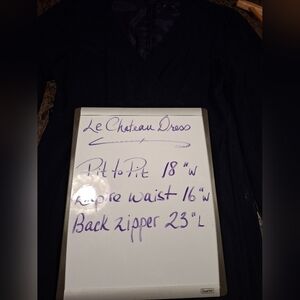 Le Chateau Dress
Pit to Pit 18"W
Empire waist 16"W
Back zipper 23"L